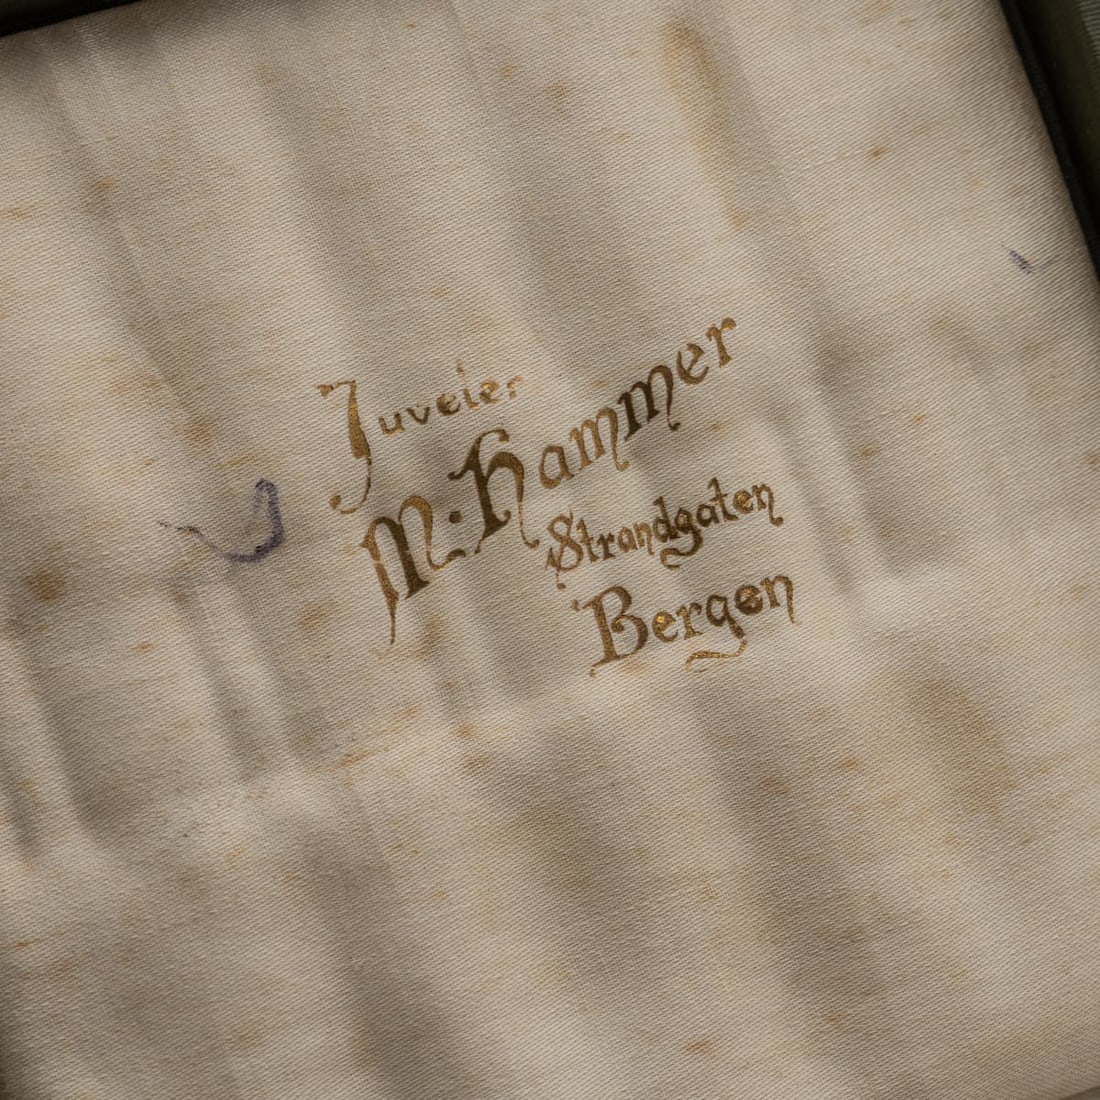 Juveler
M. Hammer
Strandgaten
Bergen